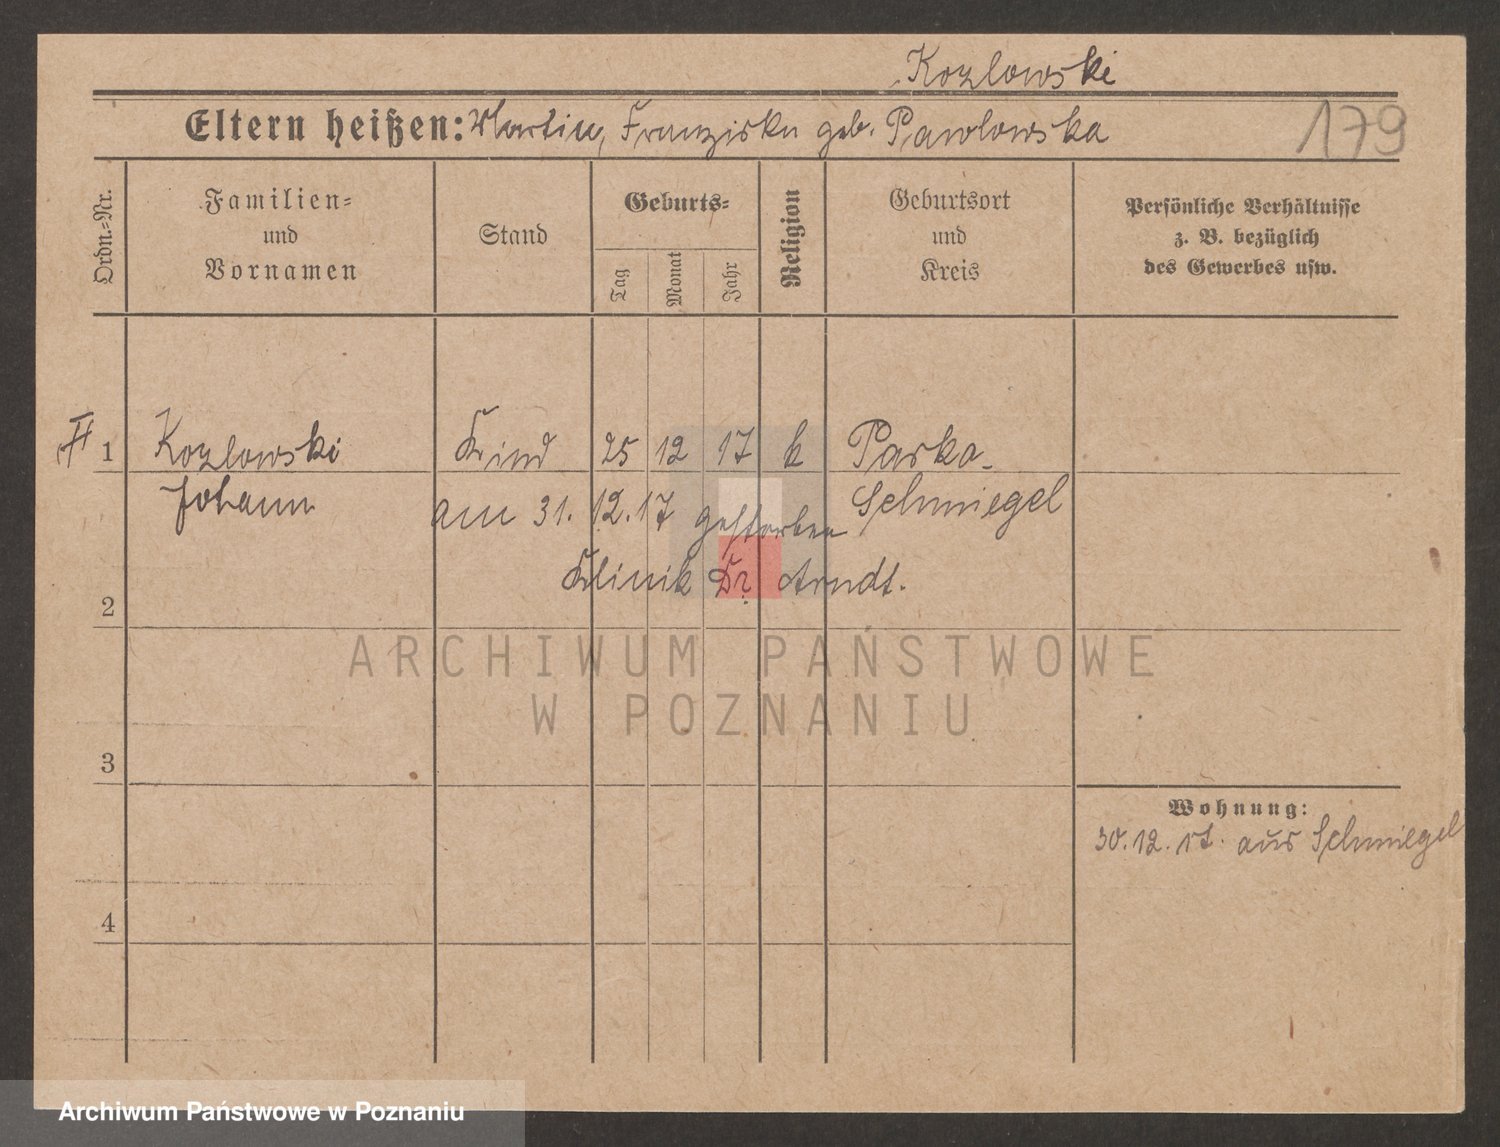 Kozlowski
Eltern heißen: Martin, Franziska geb. Pawlowska
179
Ordn.-Nr.
Familien-
und
Vornamen
Stand
Geburts-
Tag
Monat
Jahr
Religion
Geburtsort
und
Kreis
Persönliche Verhältnisse
z. B. bezüglich
des Gewerbes usw.
1 Kozlowski Kind 25 12 17 k Parsko
Johann am 31. 12. 17 gestorben Schmiegel
Klinik Dr. Arndt.
2
3
4
Wohnung:
30. 12. 17. aus Schmiegel
ARCHIWUM PAŃSTWOWE
W POZNANIU
Archiwum Państwowe w Poznaniu